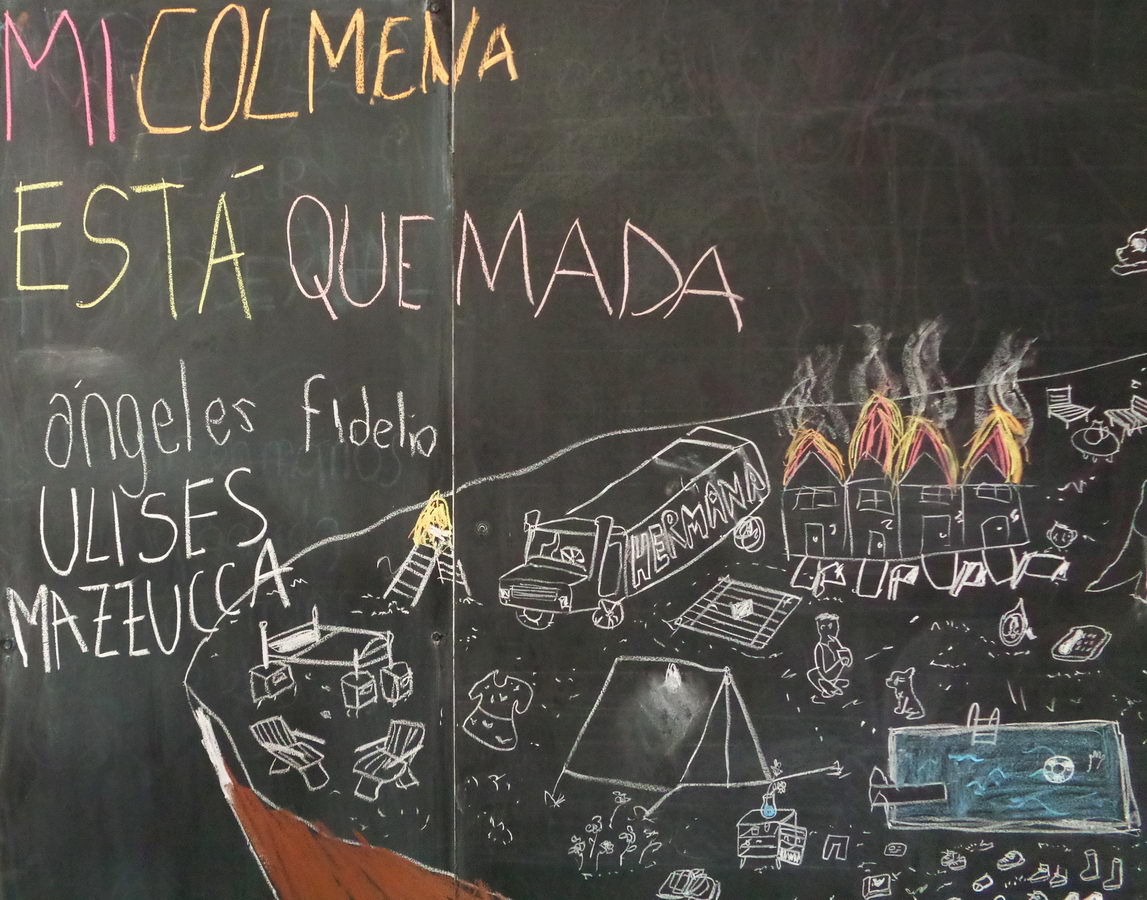 MI COLMENA
ESTÁ QUEMADA
ángeles fidelio
ULISES
MAZZUCCA
HERMANA